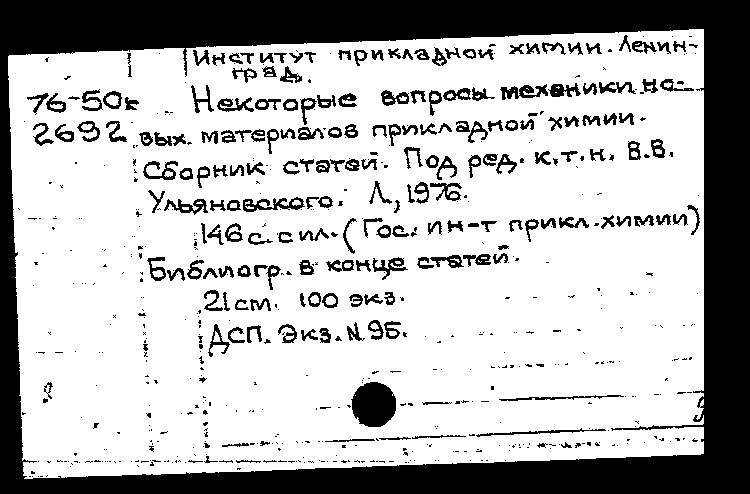 Институт прикладной химии. Ленин-
град.
76-50к Некоторые вопросы механики но-
2692 вых материалов прикладной химии.
Сборник статей. Под ред. к.т.н. В.В.
Ульяновского. Л., 1976.
146 с. с ил. (Гос. ин-т прикл. химии)
Библиогр. в конце статей.
21 см. 100 экз.
ДСП. Экз. N 95.